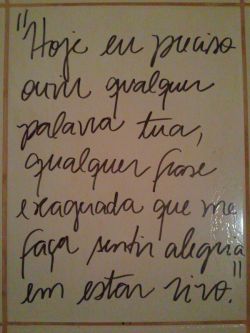 "Hoje eu preciso
ouvir qualquer
palavra tua,
qualquer frase
exagerada que me
faça sentir alegria
em estar vivo."